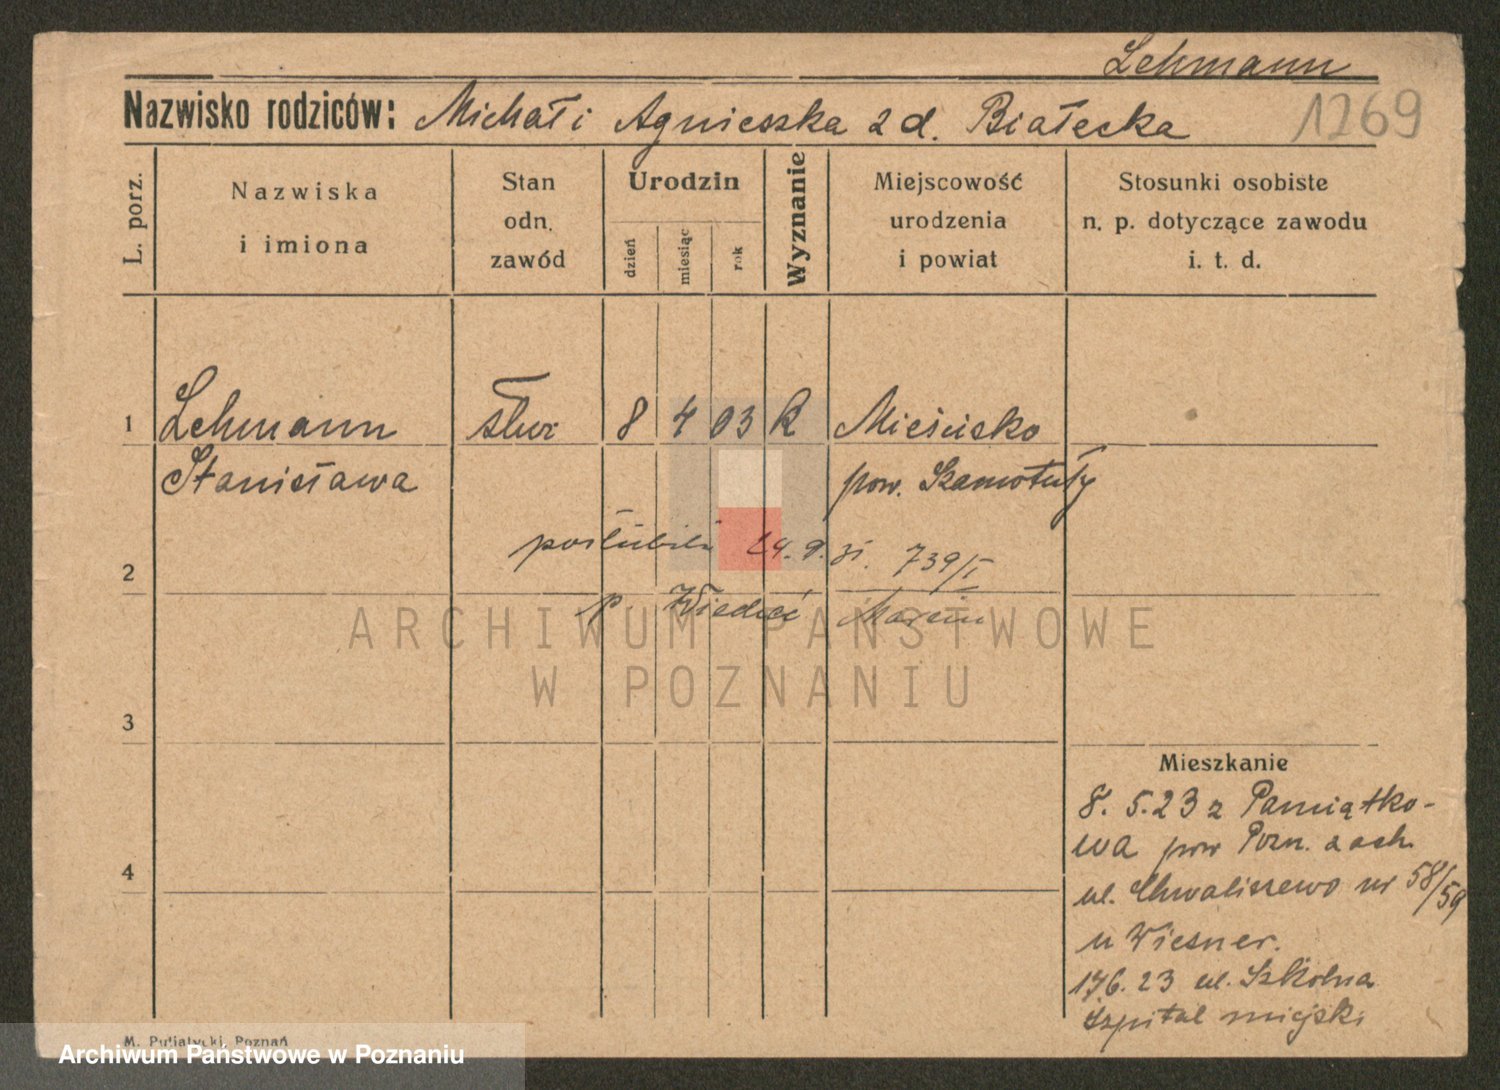 Lehmann
Nazwisko rodziców: Michał i Agnieszka z d. Białecka
1269
L. porz.
Nazwiska
i imiona
Stan
odn.
zawód
Urodzin
dzień
miesiąc
rok
Wyznanie
Miejscowość
urodzenia
i powiat
Stosunki osobiste
n. p. dotyczące zawodu
i. t. d.
1
Lehmann
służ
8
4
03
R
Mieścisko
Stanisława
pow. Szamotuły
poślubiła 24.9.31. 739/I
2
p. Marcin
ARCHIWUM PAŃSTWOWE
W POZNANIU
3
Mieszkanie
8. 5. 23 z Pamiątko-
wa pow Pozn. zach.
4
ul. Chwaliszewo nr 58/59
u Wiesner.
17.6.23 ul. Szkolna
szpital miejski
M. Putiatycki, Poznań
Archiwum Państwowe w Poznaniu